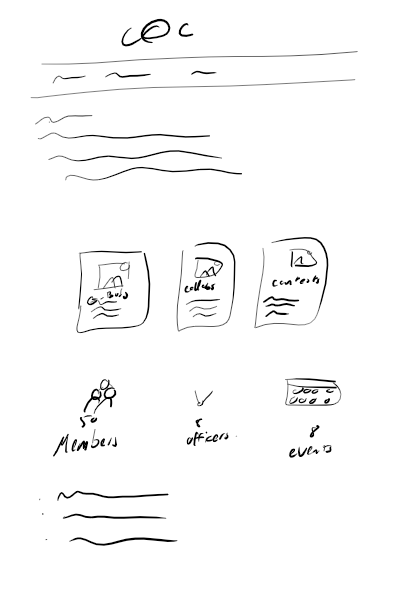 COC
collabs
contests
50
Members
officers
8
events